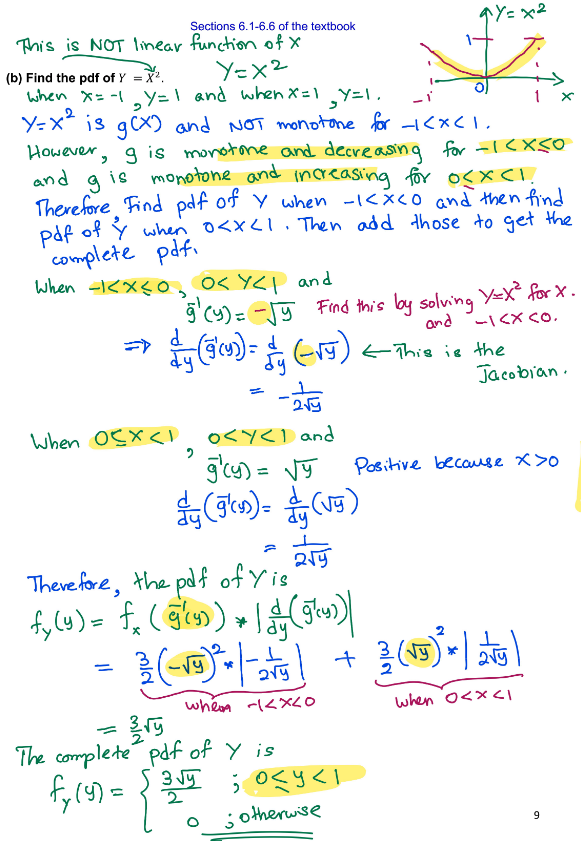 Sections 6.1-6.6 of the textbook
Y = x²
1
0
-1
1
x
This is NOT linear function of X
(b) Find the pdf of Y = X².
Y = X²
when X = -1, Y = 1 and when X = 1, Y = 1.
Y = X² is g(X) and NOT monotone for -1 < X < 1.
However, g is monotone and decreasing for -1 < X ≤ 0
and g is monotone and increasing for 0 ≤ X < 1.
Therefore, Find pdf of Y when -1 < X < 0 and then find
pdf of Y when 0 < X < 1. Then add those to get the
complete pdf.
When -1 < X ≤ 0, 0 < Y < 1 and
g⁻¹(y) = -√y
Find this by solving Y = X² for X.
and -1 < X < 0.
⇒ d/dy (g⁻¹(y)) = d/dy (-√y) ← This is the
Jacobian.
= - 1/(2√y)
When 0 ≤ X < 1, 0 < Y < 1 and
g⁻¹(y) = √y Positive because X > 0
d/dy (g⁻¹(y)) = d/dy (√y)
= 1/(2√y)
Therefore, the pdf of Y is
f_y(y) = f_x (g⁻¹(y)) * |d/dy (g⁻¹(y))|
= 3/2 (-√y)² * |- 1/(2√y)| + 3/2 (√y)² * |1/(2√y)|
when -1 < X < 0 when 0 < X < 1
= 3/2 √y
The complete pdf of Y is
f_y(y) = { 3√y/2 ; 0 ≤ y < 1
0 ; otherwise
9